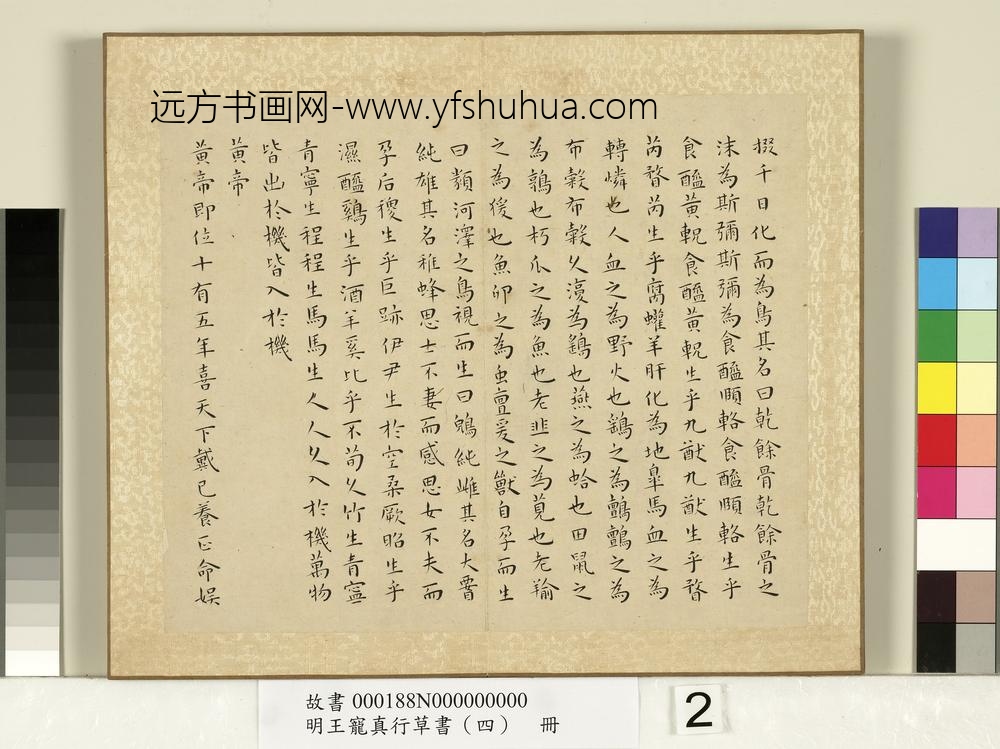 远方书画网-www.yfshuhua.com
掇千日化而為鳥其名曰乾餘骨乾餘骨之
沫為斯彌斯彌為食醯頤輅食醯頤輅生乎
食醯黃軦食醯黃軦生乎九猷九猷生乎瞀
芮瞀芮生乎腐蠸羊肝化為地皐馬血之為
轉憐也人血之為野火也鷂之為鸇鸇之為
布穀布穀久復為鷂也燕之為蛤也田鼠之
為鶉也朽瓜之為魚也老韭之為莧也老羭
之為猨也魚卵之為虫亶爰之獸自孕而生
曰類河澤之鳥視而生曰鶂純雌其名大
純雄其名稚蜂思士不妻而感思女不夫而
孕后稷生乎巨跡伊尹生於空桑厥昭生乎
濕醯雞生乎酒羊奚比乎不荀久竹生青寧
青寧生程程生馬馬生人人久入於機萬物
皆出於機皆入於機
黃帝
黃帝即位十有五年喜天下戴己養正命娛
故書 000188N000000000
明王寵真行草書（四） 冊
2